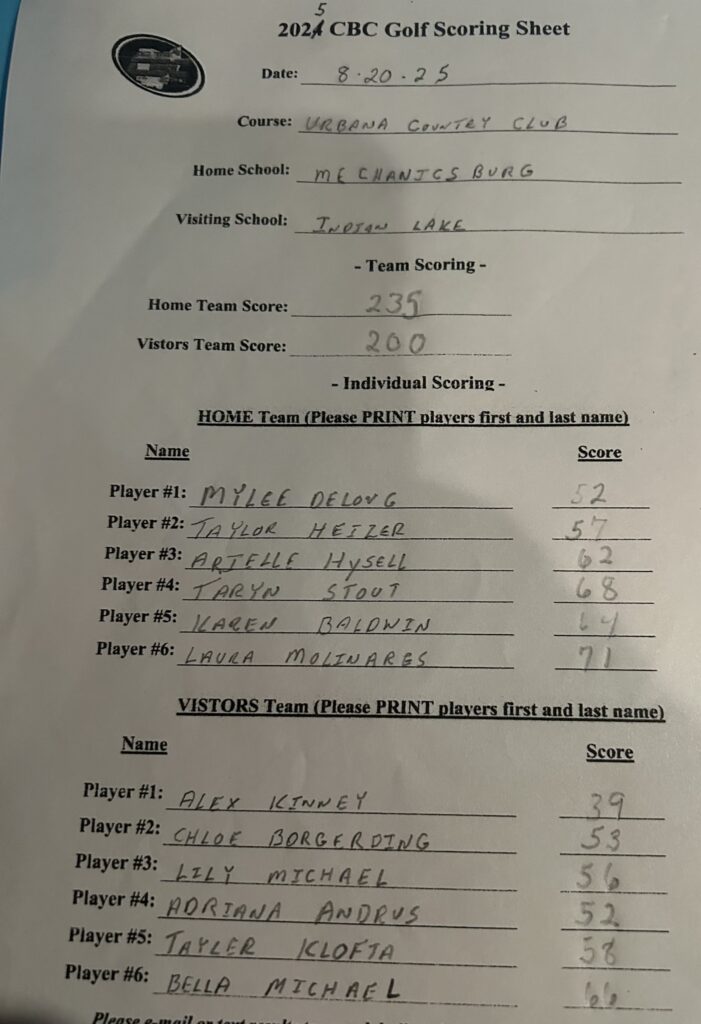 2025 CBC Golf Scoring Sheet
Date: 8-20-25
Course: URBANA COUNTRY CLUB
Home School: MECHANICSBURG
Visiting School: INDIAN LAKE
- Team Scoring -
Home Team Score: 235
Vistors Team Score: 200
- Individual Scoring -
HOME Team (Please PRINT players first and last name)
Name Score
Player #1: MYLEE DELONG 52
Player #2: TAYLOR HEIZER 57
Player #3: ARIELLE HYSELL 62
Player #4: TARYN STOUT 68
Player #5: KAREN BALDWIN 64
Player #6: LAURA MOLINARES 71
VISTORS Team (Please PRINT players first and last name)
Name Score
Player #1: ALEX KINNEY 39
Player #2: CHLOE BORGERDING 53
Player #3: LILY MICHAEL 56
Player #4: ADRIANA ANDRUS 52
Player #5: TAYLER KLOFTA 58
Player #6: BELLA MICHAEL 66
Please e-mail or text